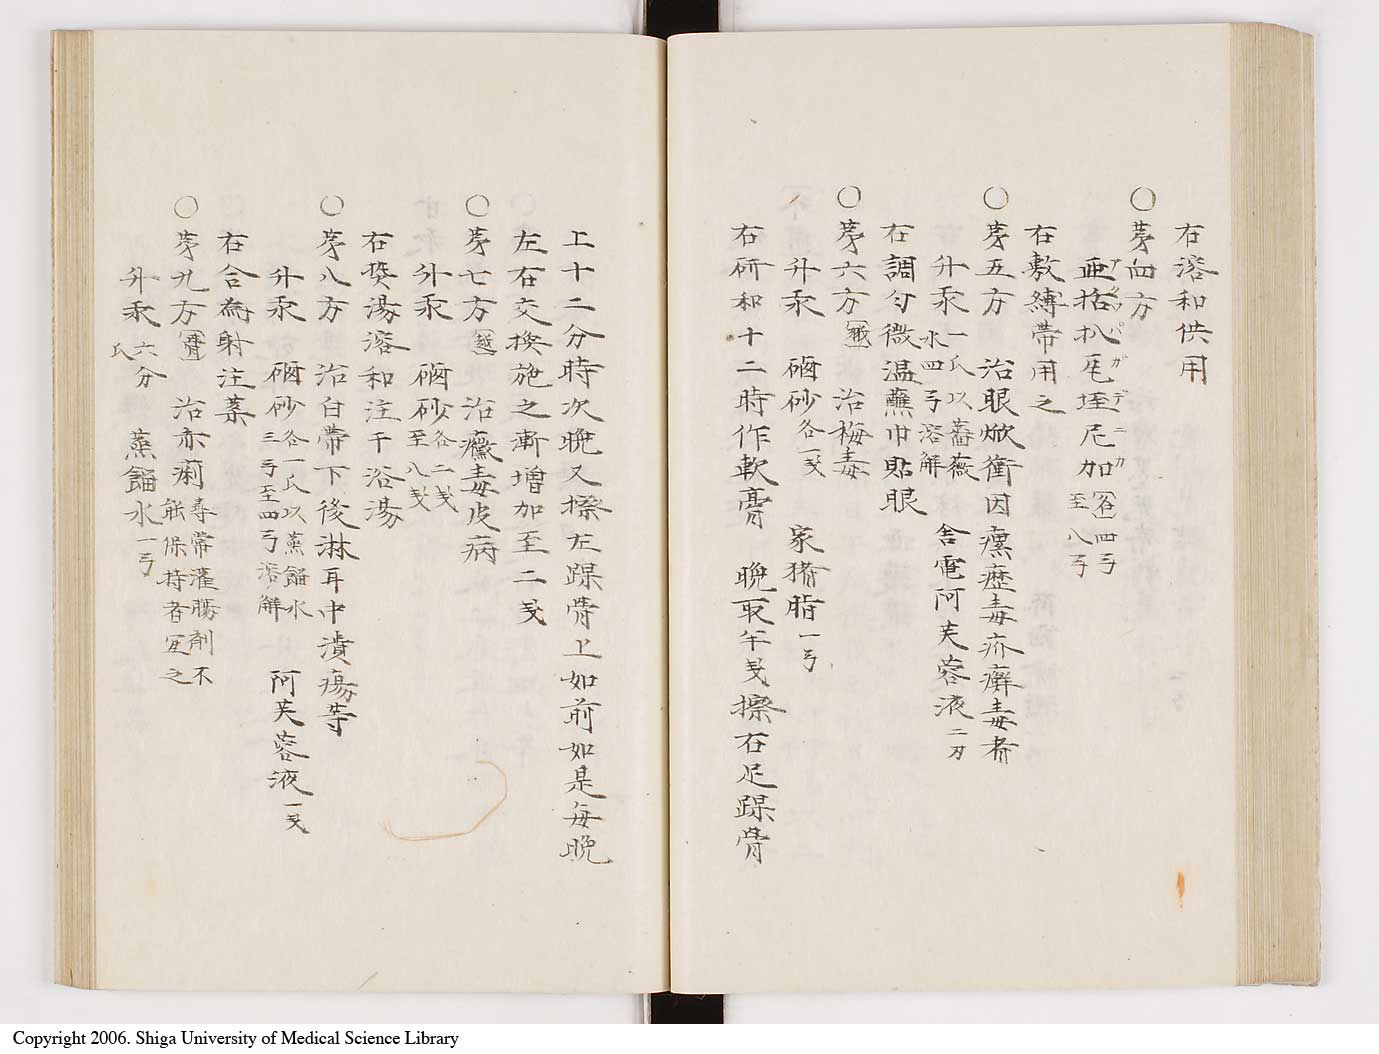 右溶和供用
○第四方
亜括扒毛垤尼加 四弓
至八弓
右敷縛帯用之
○第五方 治眼焮衝因瘰癧毒疥癬毒者
升汞一氏以薔薇
水四弓溶解 舎電阿芙蓉液二刃
右調匀微温蘸巾貼眼
○第六方 治梅毒
升汞 硇砂各一戔 家猪脂一弓
右研和十二時作軟膏 晩取半戔擦右足踝骨
上十二分時次晩又擦左踝骨上如前如是毎晩
左右交換施之漸増加至二戔
○第七方 治黴毒皮病
升汞 硇砂各二戔
至八戔
右熱湯溶和注于浴湯
○第八方 治白帯下後淋耳中潰瘍等
升汞 硇砂各一氏以蒸餾水
三弓至四弓溶解 阿芙蓉液一戔
右合為射注薬
○第九方 治赤痢尋常灌腸剤不
能保持者宜之
升汞六分
氏 蒸餾水一弓
Copyright 2006. Shiga University of Medical Science Library